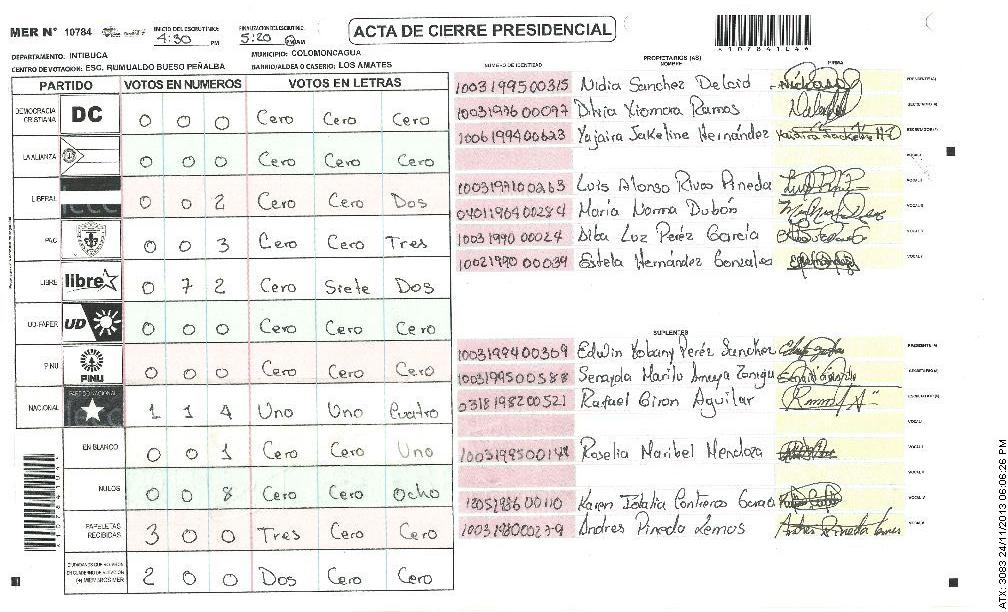 MER N° 10784
INICIO DEL ESCRUTINIO: 4:30 PM
FINALIZACION DEL ESCRUTINIO: 5:20 PM AM
ACTA DE CIERRE PRESIDENCIAL
DEPARTAMENTO: INTIBUCA
MUNICIPIO: COLOMONCAGUA
CENTRO DE VOTACION: ESC. RUMUALDO BUESO PEÑALBA
BARRIO/ALDEA O CASERIO: LOS AMATES
PARTIDO VOTOS EN NUMEROS VOTOS EN LETRAS
DEMOCRACIA CRISTIANA DC 0 0 0 Cero Cero Cero
LA ALIANZA 0 0 0 Cero Cero Cero
LIBERAL 0 0 2 Cero Cero Dos
PAC 0 0 3 Cero Cero Tres
LIBRE libre 0 7 2 Cero Siete Dos
UD-FAPER UD 0 0 0 Cero Cero Cero
PINU PINU 0 0 0 Cero Cero Cero
NACIONAL PARTIDO NACIONAL 1 1 4 Uno Uno Cuatro
EN BLANCO 0 0 1 Cero Cero Uno
NULOS 0 0 8 Cero Cero Ocho
PAPELETAS RECIBIDAS 3 0 0 Tres Cero Cero
CIUDADANOS QUE VOTARON EN CUADERNO DE VOTACION (+) MIEMBROS MER 2 0 0 Dos Cero Cero
PROPIETARIOS (AS)
NUMERO DE IDENTIDAD NOMBRE FIRMA
1003199500315 Nidia Sanchez Delcid PRESIDENTE(A)
1003197600097 Dilvia Xiomara Ramos SECRETARIO(A)
1006199400623 Yajaira Jakeline Hernández ESCRUTADOR(A)
VOCAL I
1003197100263 Luis Alonso Rivas Pineda VOCAL II
0401196400284 María Norma Dubón VOCAL III
1003199000024 Luz Peréz García VOCAL IV
1002199000039 Estela Hernández Gonzales VOCAL V
SUPLENTES
1003199400369 Edwin Yobany Peréz Sanchez PRESIDENTE(A)
1003199500588 Marilu Amaya SECRETARIO(A)
0318198200521 Rafael Giron Aguilar ESCRUTADOR(A)
VOCAL I
Roselia Maribel Mendoza VOCAL II
VOCAL III
Karen Contreras VOCAL IV
Andres Pineda Lemos VOCAL V
ATX: 3083 24/11/2013 06:06:26 PM